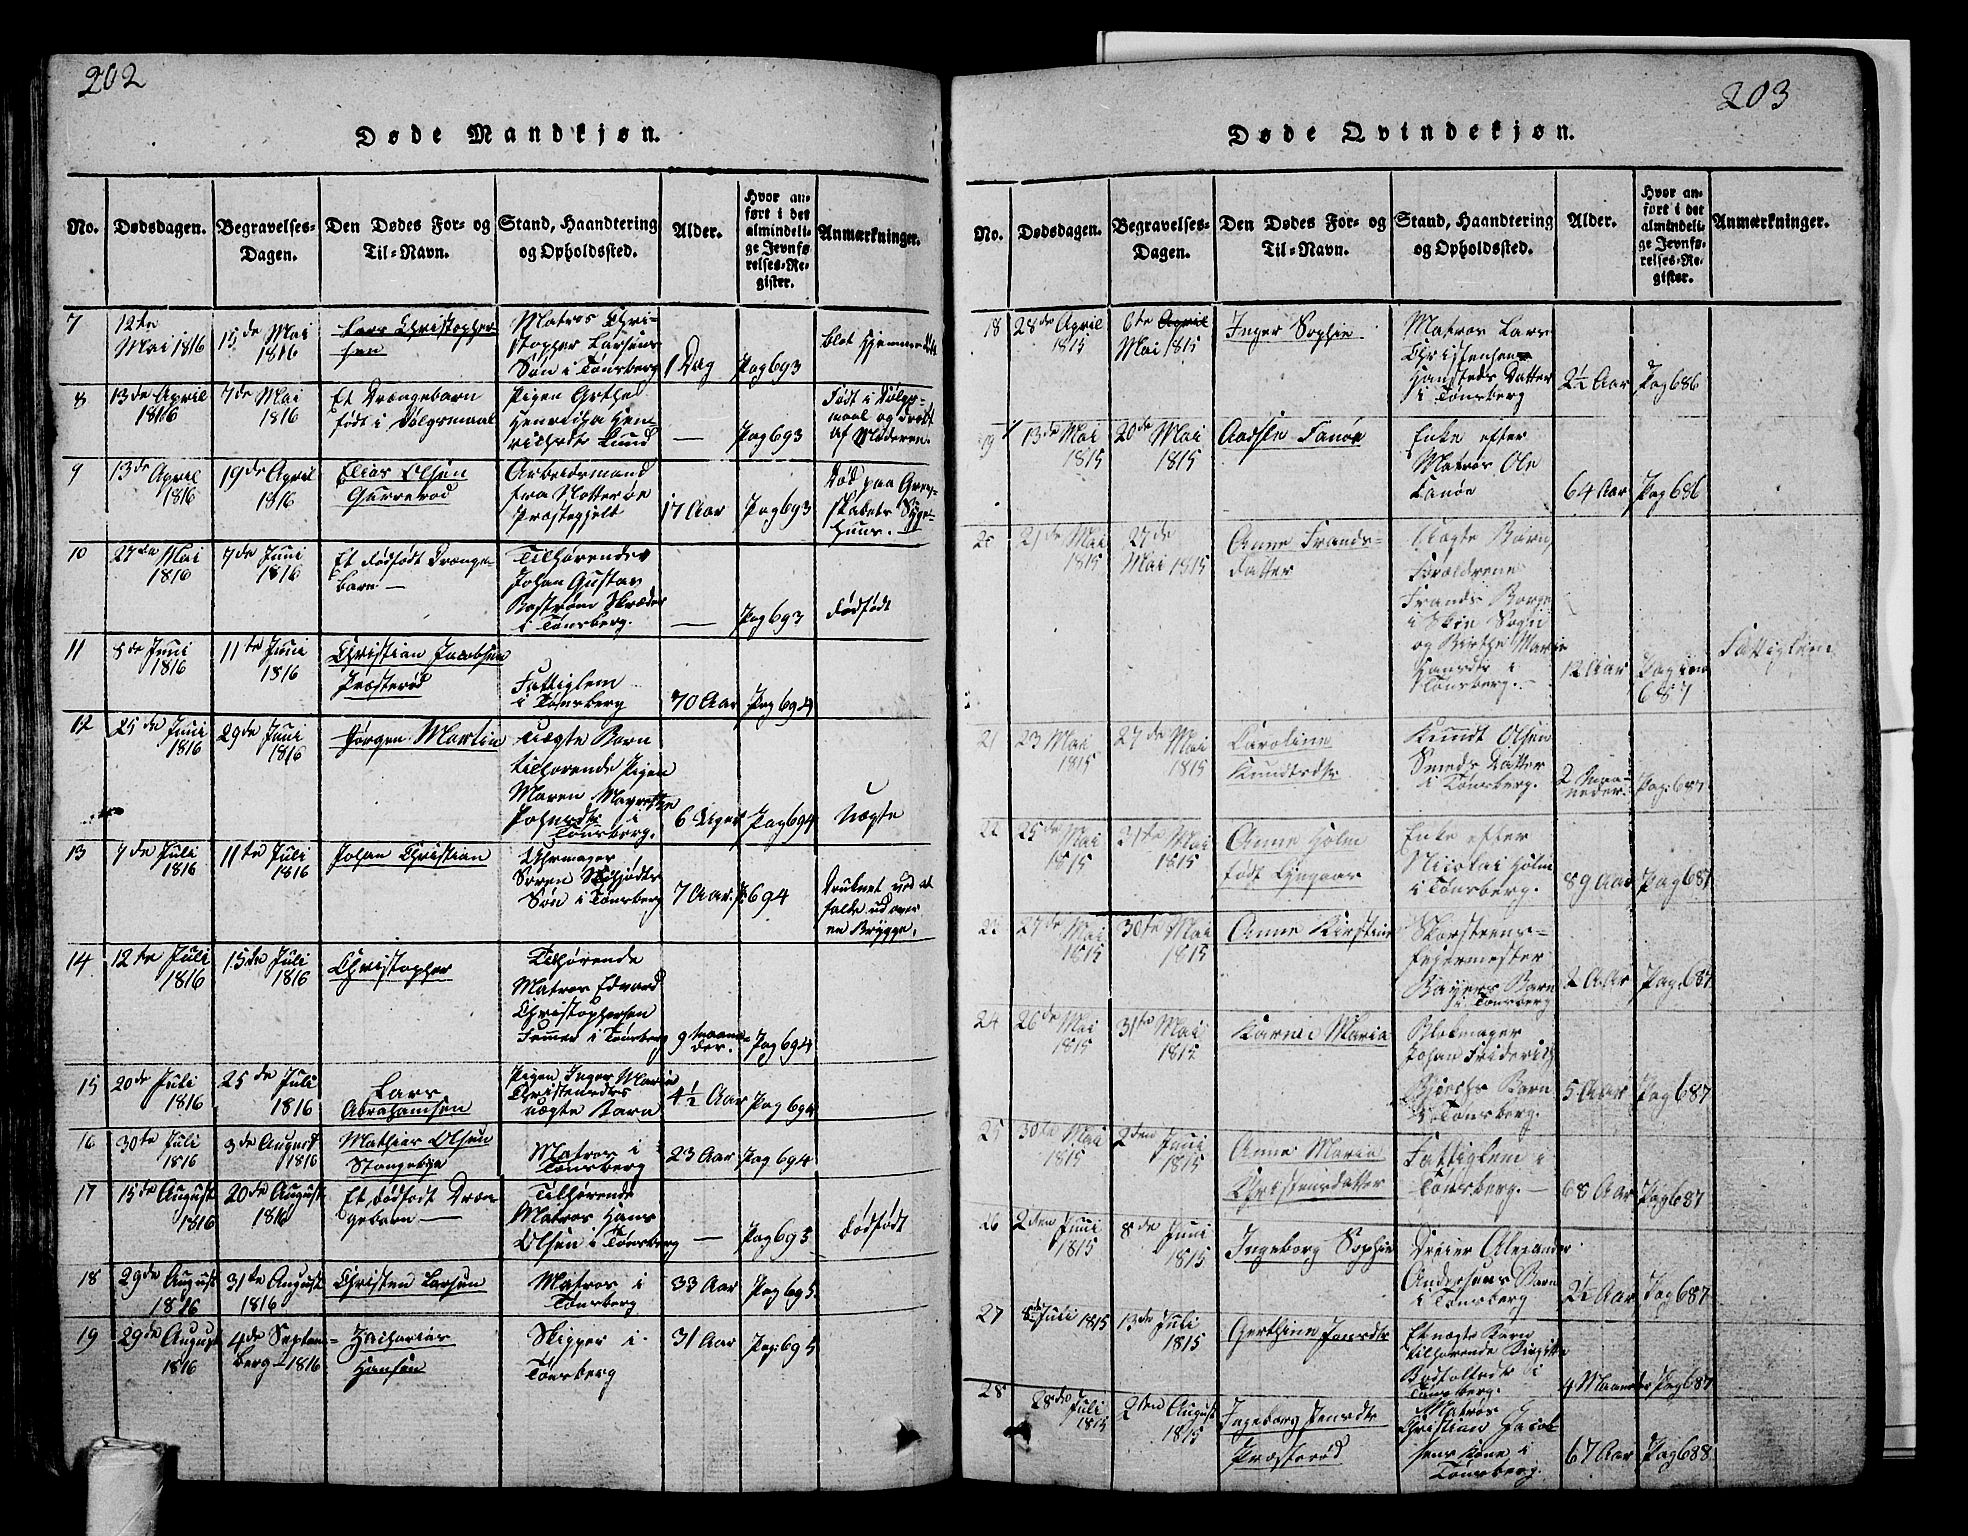 202
Døde Mandkjøn.
No.
Dødsdagen.
Begravelses-
Dagen.
Den Dødes For- og
Til-Navn.
Stand, Haandtering
og Opholdssted.
Alder.
Hvor an-
ført i det
almindeli-
ge Jevnfø-
relses-Re-
gister.
Anmærkninger.
7
12te
Mai 1816
15de Mai
1816
Lars Christopher
sen
Matros Chri-
stopher Larsens
Søn i Tønsberg
1 Dag
Pag 693
blot hjemme
8
13de April
1816
7de Mai
1816
Et Drængebarn
født i Dølgsmaal
Pigen Grethe
Henricha Hen-
richsdt Lund
—
Pag 693
Født i Dølgs-
maal og dræbt
af Moderen
9
13de April
1816
19de April
1816
Elias Olsen
Gurrerød
Arbeidsmand
fra Nøtterøe
Præstegjeld
17 Aar
Pag 693
Død paa Grev-
skabets Syge-
huus.
10
27de Mai
1816
7de Juni
1816
Et dødfødt Drænge-
barn —
Tilhørende
Johan Gustav
Boström Skræder
i Tønsberg.
—
Pag 693
dødfødt
11
5de Juni
1816
11te Juni
1816
Christian Jacobsen
Præsterød
Fattiglem
i Tønsberg
70 Aar
Pag 694
12
25de Juni
1816
29de Juni
1816
Jørgen Martin
uægte Barn
tilhørende Pigen
Maren Margrethe
Johnsdtr i
Tønsberg.
6 Uger
Pag 694
Uægte
13
7de Juli
1816
11te Juli
1816
Johan Christian
Uhrmager
Søren Schjødts
Søn i Tønsberg
7 Aar.
P. 694
Druknet ved at
falde ud over
en Brygge.
14
12te Juli
1816
15de Juli
1816
Christopher
Tilhørende
Matros Edvard
Christophersen
i Tønsberg
9 Maane-
der.
Pag 694
15
20de Juli
1816
25de Juli
1816
Lars
Abrahamsen
Pigen Inger Maria
Christensdtrs
uægte Barn
4½ Aar
Pag 694
16
30te Juli
1816
3de August
1816
Mathias Olsen
Stangebye
Matros i
Tønsberg
23 Aar
Pag 694
17
15de August
1816
20de August
1816
Et dødfødt Dræn-
gebarn —
Tilhørende
Matros Hans
Olsen i Tønsberg
—
Pag 695
dødfødt
18
29de August
1816
31te August
1816
Christen Larsen
Matros i
Tønsberg
33 Aar
Pag 695
19
29de August
1816
4de Septem-
berg 1816
Zacharias
Hansen
Skipper i
Tønsberg
31 Aar
Pag: 695
203
Døde Qvindekjøn.
No.
Dødsdagen.
Begravelses-
Dagen.
Den Dødes For- og
Til-Navn.
Stand, Haandtering
og Opholdssted.
Alder.
Hvor an-
ført i det
almindeli-
ge Jevnfø-
relses-Re-
gister.
Anmærkninger.
18
28de April
1815
6te April
Mai 1815
Inger Sophie
Matros Lars
Christensen
Hansteds Datter
i Tønsberg
2½ Aar
Pag 686
19
13de Mai
1815
20de Mai
1815
Aadske Fanøe
Enke efter
Matros Ole
Fanøe
64 Aar
Pag 686
20
21de Mai
1815
27de
Mai 1815
Anne Frands-
datter
Ægte Barn,
Forældrene
Frands Borge
i Skie Sogn
og Birthe Marie
Hansdtr i
Tønsberg.—
12 Aar
Pag
687
Fattiglem
21
23 Mai
1815
27de Mai
1815
Caroline
Knudtsdtr
Knudt Olsen
Smeds Datter
i Tønsberg.
2 Maa-
neder.
Pag: 687
22
25de Mai
1815
31te Mai
1815
Anne Holm
født Lyngaas
Enke efter
Nicolai Holm
i Tønsberg.
89 Aar
Pag 687
23
27de Mai
1815
30te Mai
1815
Anne Kirstine
Skorsteens-
feiermester
Bayers Barn
i Tønsberg
2 Aar
Pag. 687
24
26de Mai
1815
31te Mai
1815
Karne Maria
Blokmager
Johan Friderich
Bjerchs Barn
i Tønsberg.
5 Aar
Pag 687
25
30te Mai
1815
2den Juni
1815
Anne Maria
Christensdatter
Fattiglem i
Tønsberg.—
68 Aar
Pag 687
26
2den Juni
1815
8de Juni
1815
Ingeborg Sophie
Dreier Alexander
Andersens Barn
i Tønsberg
2½ Aar
Pag 687
27
8de Juli 1815
13de Juli
1815
Gerthine Jonsdtr
Et uægte Barn
tilhørende Birgitte
Bodsolsdtr i
Tønsberg.
4 Maaneder
Pag 687
28
28de Juli
1815
2den August
1815
Ingeborg Jensdtr
Præsterød
Matros
Christian Jacob-
sens Kone i
Tønsberg.
67 Aar
Pag 688